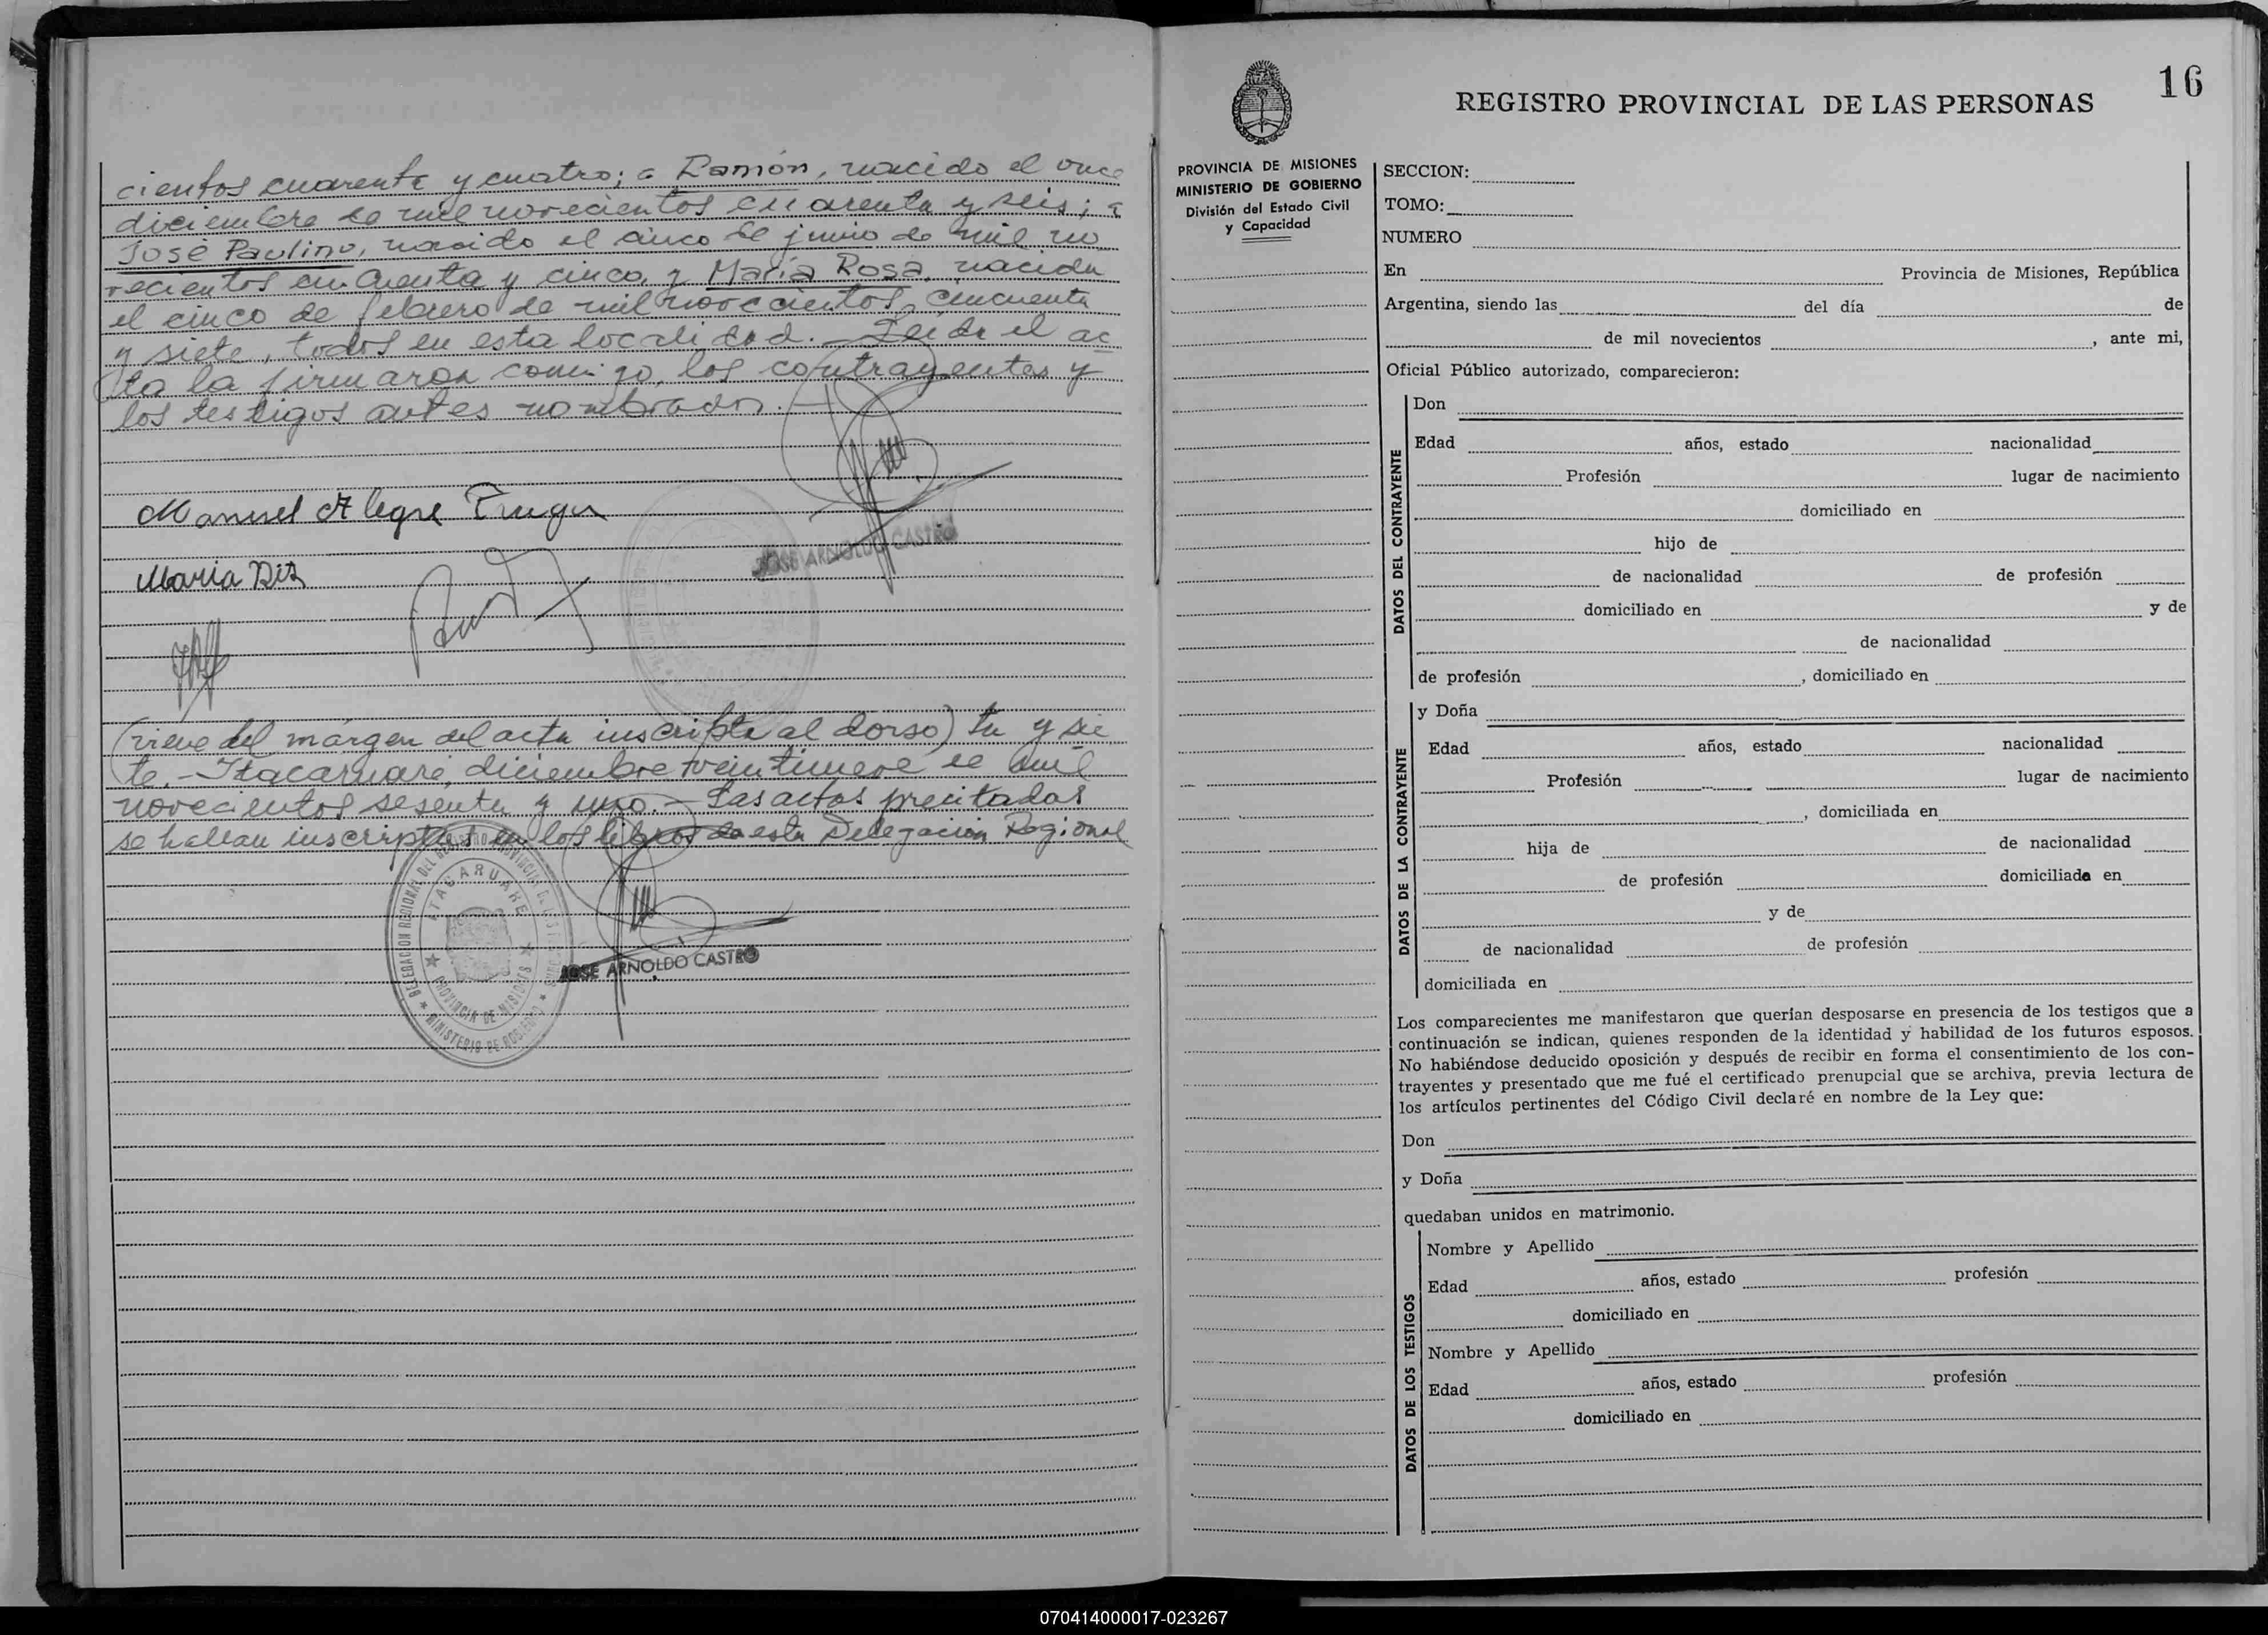 cientos cuarenta y cuatro; a Ramón, nacido el once
diciembre de mil novecientos cuarenta y seis; a
José Paulino, nacido el cinco de junio de mil no
vecientos cincuenta y cinco, y María Rosa, nacida
el cinco de febrero de mil novecientos cincuenta
y siete, todos en esta localidad.- Leída el ac
ta la firmaron conmigo, los contrayentes y
los testigos antes nombrados.-
Manuel Alegre
JOSE ARNOLDO CASTRO
Maria
(viene del márgen del acta inscripta al dorso) ta y sie
te.- Itacaruaré, diciembre veintinueve de mil
novecientos sesenta y uno.- Las actas precitadas
se hallan inscriptas en los libros de esta Delegación Regional
DELEGACION REGIONAL DEL REGISTRO PROVINCIAL DE LAS PERSONAS
ITACARUARE
PROVINCIA DE MISIONES
MINISTERIO DE GOBIERNO
JOSE ARNOLDO CASTRO
16
REGISTRO PROVINCIAL DE LAS PERSONAS
PROVINCIA DE MISIONES
MINISTERIO DE GOBIERNO
División del Estado Civil
y Capacidad
SECCION:
TOMO:
NUMERO
En Provincia de Misiones, República
Argentina, siendo las del día de
de mil novecientos , ante mi,
Oficial Público autorizado, comparecieron:
DATOS DEL CONTRAYENTE
Don
Edad años, estado nacionalidad
Profesión lugar de nacimiento
domiciliado en
hijo de
de nacionalidad de profesión
domiciliado en y de
de nacionalidad
de profesión , domiciliado en
DATOS DE LA CONTRAYENTE
y Doña
Edad años, estado nacionalidad
Profesión lugar de nacimiento
, domiciliada en
hija de de nacionalidad
de profesión domiciliado en
y de
de nacionalidad de profesión
domiciliada en
Los comparecientes me manifestaron que querían desposarse en presencia de los testigos que a
continuación se indican, quienes responden de la identidad y habilidad de los futuros esposos.
No habiéndose deducido oposición y después de recibir en forma el consentimiento de los con-
trayentes y presentado que me fué el certificado prenupcial que se archiva, previa lectura de
los artículos pertinentes del Código Civil declaré en nombre de la Ley que:
Don
y Doña
quedaban unidos en matrimonio.
DATOS DE LOS TESTIGOS
Nombre y Apellido
Edad años, estado profesión
domiciliado en
Nombre y Apellido
Edad años, estado profesión
domiciliado en
070414000017-023267